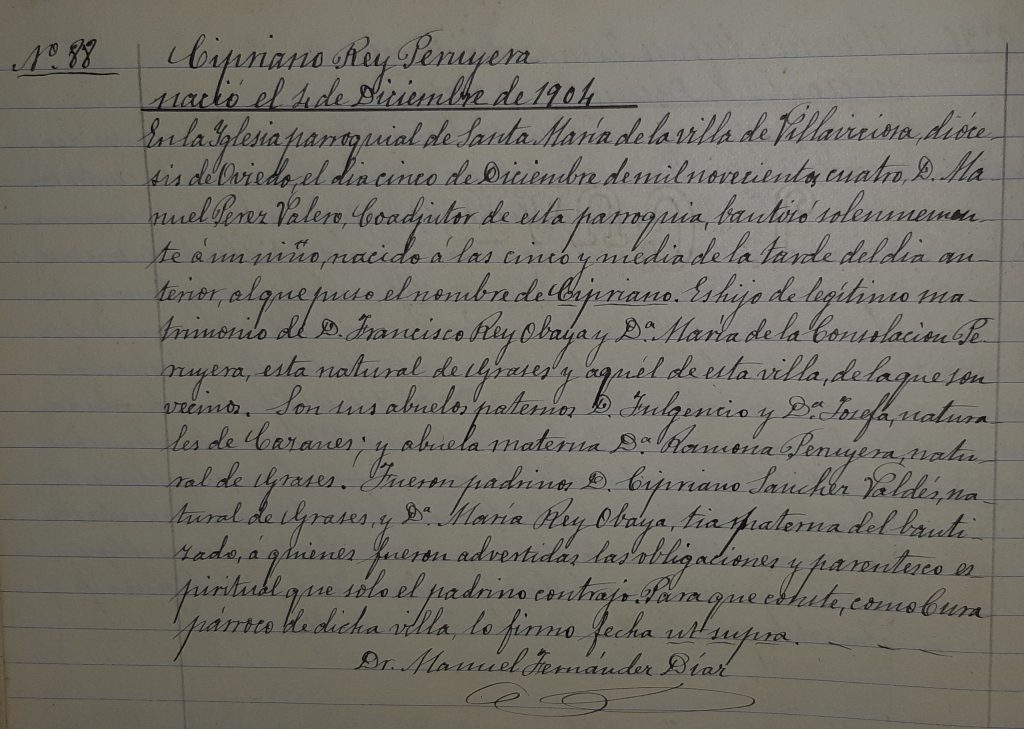 Nº. 88
Cipriano Rey Peruyera
nació el 4 de Diciembre de 1904
En la Iglesia parroquial de Santa María de la villa de Villaviciosa, dióce-
sis de Oviedo, el dia cinco de Diciembre de mil novecientos cuatro, D. Ma-
nuel Perez Valero, Coadjutor de esta parroquia, bautizó solemnemen-
te á un niño, nacido á las cinco y media de la tarde del dia an-
terior, al que puso el nombre de Cipriano. Es hijo de legítimo ma-
trimonio de D. Francisco Rey Obaya y Dª. María de la Consolacion Pe-
ruyera, esta natural de Grases y aquél de esta villa, de la que son
vecinos. Son sus abuelos paternos D. Fulgencio y Dª. Josefa, natura-
les de Cazanes; y abuela materna Dª. Ramona Peruyera, natu-
ral de Grases. Fueron padrinos D. Cipriano Sanchez Valdés, na-
tural de Grases, y Dª. María Rey Obaya, tia paterna del bauti-
zado, á quienes fueron advertidas las obligaciones y parentesco es-
piritual que solo el padrino contrajo. Para que conste, como Cura
párroco de dicha villa, lo firmo fecha ut supra.
Dr. Manuel Fernández Díaz